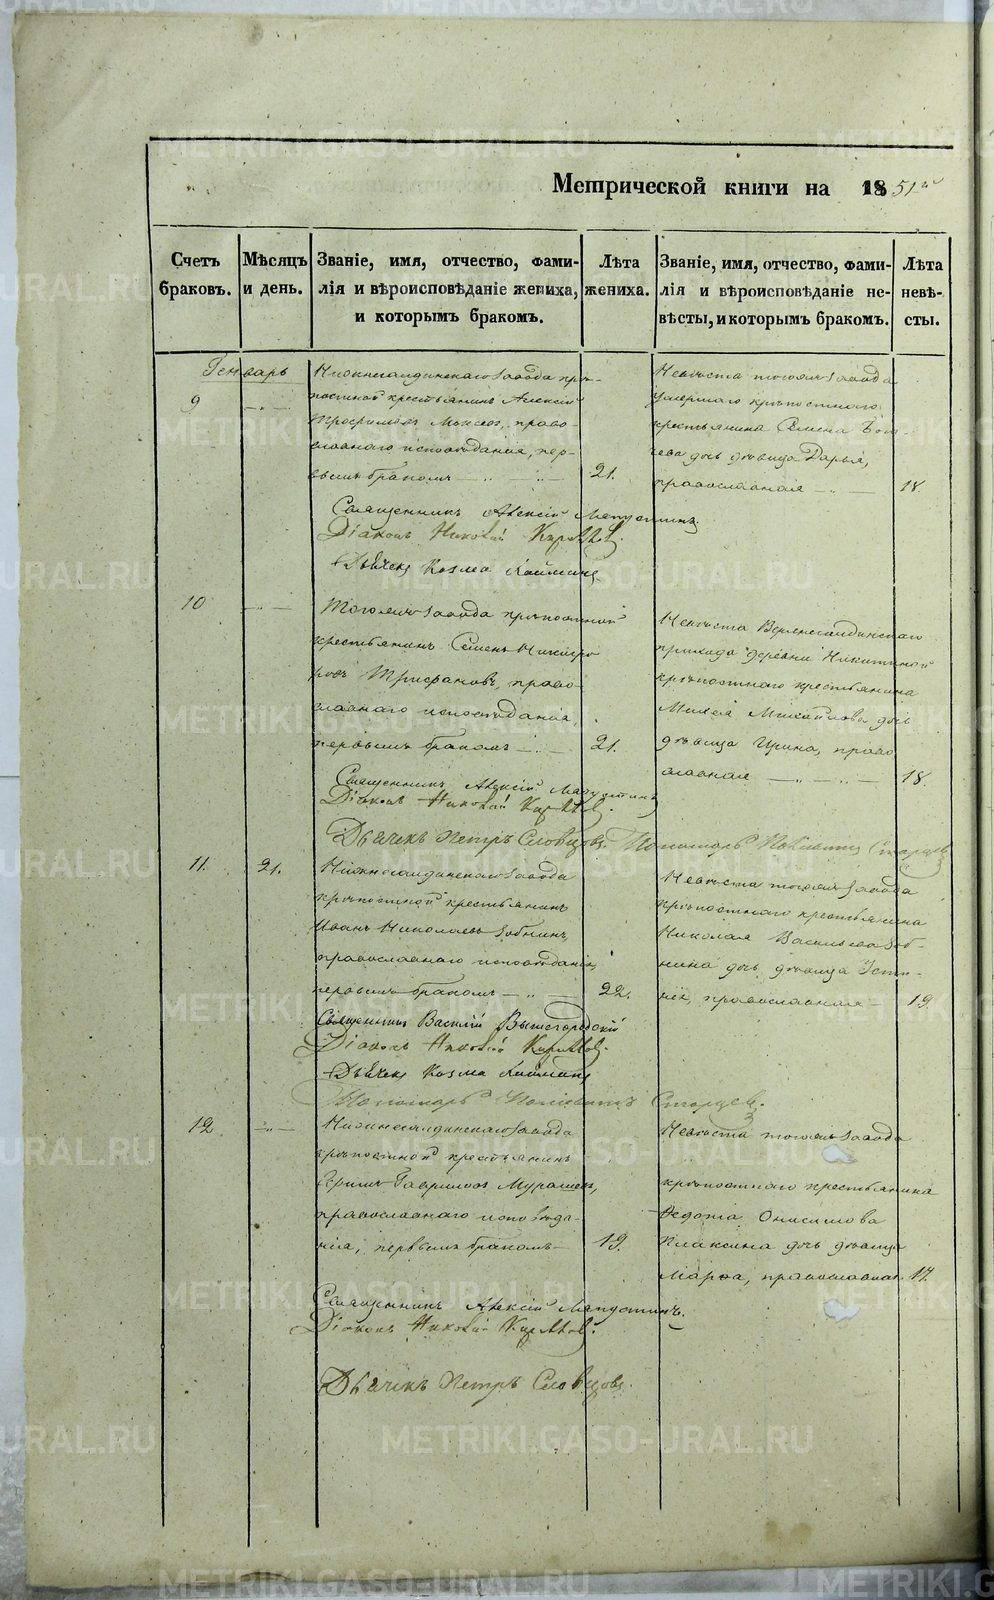 Метрической книги на 1851й
Счетъ браковъ.
Мѣсяцъ и день.
Званіе, имя, отчество, фами-
лія и вѣроисповѣданіе жениха,
и которымъ бракомъ.
Лѣта жениха.
Званіе, имя, отчество, фами-
лія и вѣроисповѣданіе не-
вѣсты, и которымъ бракомъ.
Лѣта невѣ-
сты.
Генварь
9
Нижнесалдинскаго завода крѣ-
постной крестьянинъ Алексій
Трофимовъ право-
славнаго исповѣданія, пер-
вымъ бракомъ
21.
Невѣста тогожъ завода
умершаго крѣпостнаго
крестьянина Семена
дочь дѣвица Дарья,
православная
18.
Священникъ Алексій
Діаконъ Николай
Дьячекъ Козма
10
Тогожъ завода крѣпостной
крестьянинъ Семенъ Никифо
ровъ Трифановъ, право-
славнаго исповѣданія,
первымъ бракомъ
21.
Невѣста Верхнесалдинскаго
прихода деревни Никитиной
крѣпостнаго крестьянина
Михайлова дочь
дѣвица Ирина, право
славная
18.
Священникъ Алексій
Діаконъ Николай
Дьячекъ Петръ Словцовъ. Пономарь Старцев
11. 21.
Нижнесалдинскаго завода
крѣпостной крестьянинъ
Иванъ Николаевъ Зобнинъ,
православнаго исповѣданія,
первымъ бракомъ
22.
Невѣста тогожъ завода
крѣпостнаго крестьянина
Николая Васильева Зоб-
нина дочь дѣвица Усти-
нія, православная
19.
Священникъ Василій Вышегородскій
Діаконъ Николай
Дьячекъ Козма
Пономарь Старцев.
12.
Нижнесалдинскаго завода
крѣпостной крестьянинъ
Гавриловъ
православнаго исповѣда-
нія, первымъ бракомъ
19.
Невѣста тогожъ завода
крѣпостнаго крестьянина
Федота Онисимова
Плаксина дочь дѣвица
Марѳа, православная
17.
Священникъ Алексій
Діаконъ Николай
Дьячекъ Петръ Словцовъ.
METRIKI.GASO-URAL.RU